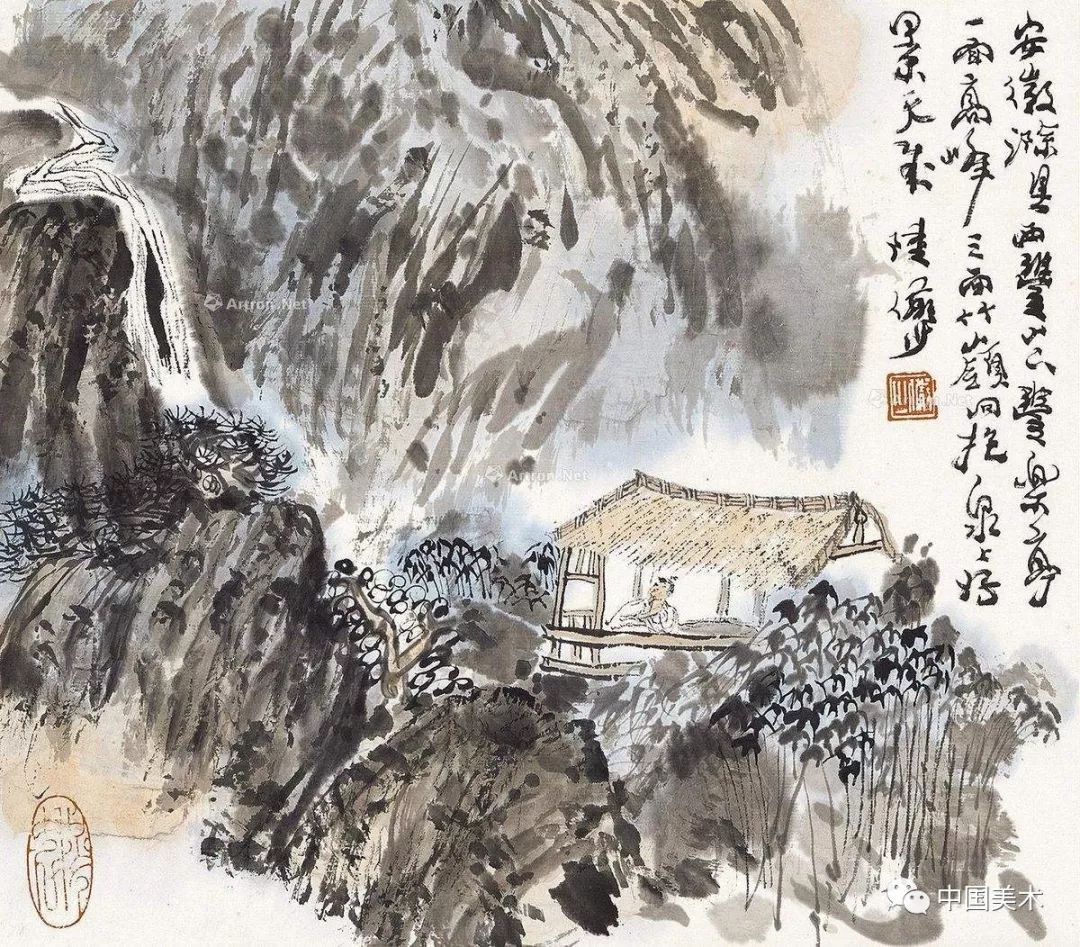 安徽滁县西豐山豐樂亭
一面高峰三面竹嶺回抱泉上好
景天成 陸儼少
Artron.Net
Artron.Net
Artron.Net
中国美术